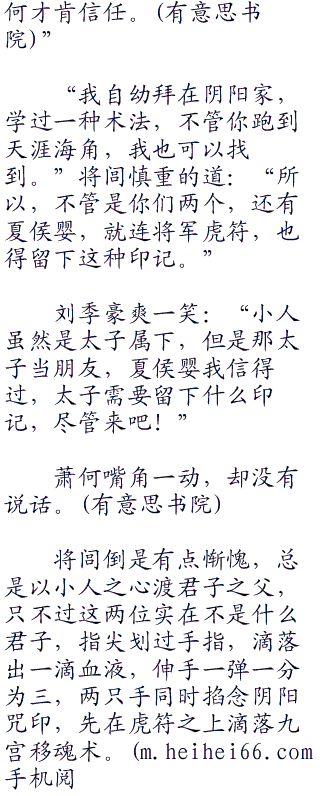 何才肯信任。(有意思书
院)”
“我自幼拜在阴阳家，
学过一种术法，不管你跑到
天涯海角，我也可以找
到。”将闾慎重的道：“所
以，不管是你们两个，还有
夏侯婴，就连将军虎符，也
得留下这种印记。”
刘季豪爽一笑：“小人
虽然是太子属下，但是那太
子当朋友，夏侯婴我信得
过，太子需要留下什么印
记，尽管来吧！”
萧何嘴角一动，却没有
说话。(有意思书院)
将闾倒是有点惭愧，总
是以小人之心渡君子之父，
只不过这两位实在不是什么
君子，指尖划过手指，滴落
出一滴血液，伸手一弹一分
为三，两只手同时掐念阴阳
咒印，先在虎符之上滴落九
宫移魂术。(m.heihei66.com
手机阅